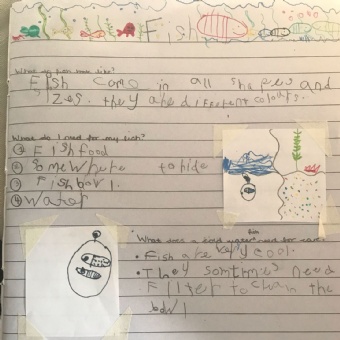 Fish
What do fish look like?
Fish come in all shapes and
sizes. they are different colours.
What do I need for my fish?
① Fish food
② Somewhere to hide
③ Fish bowl.
④ water
What does a need for care?
• Fish are very cool.
• They somtmies need
Filter to clean the
bowl